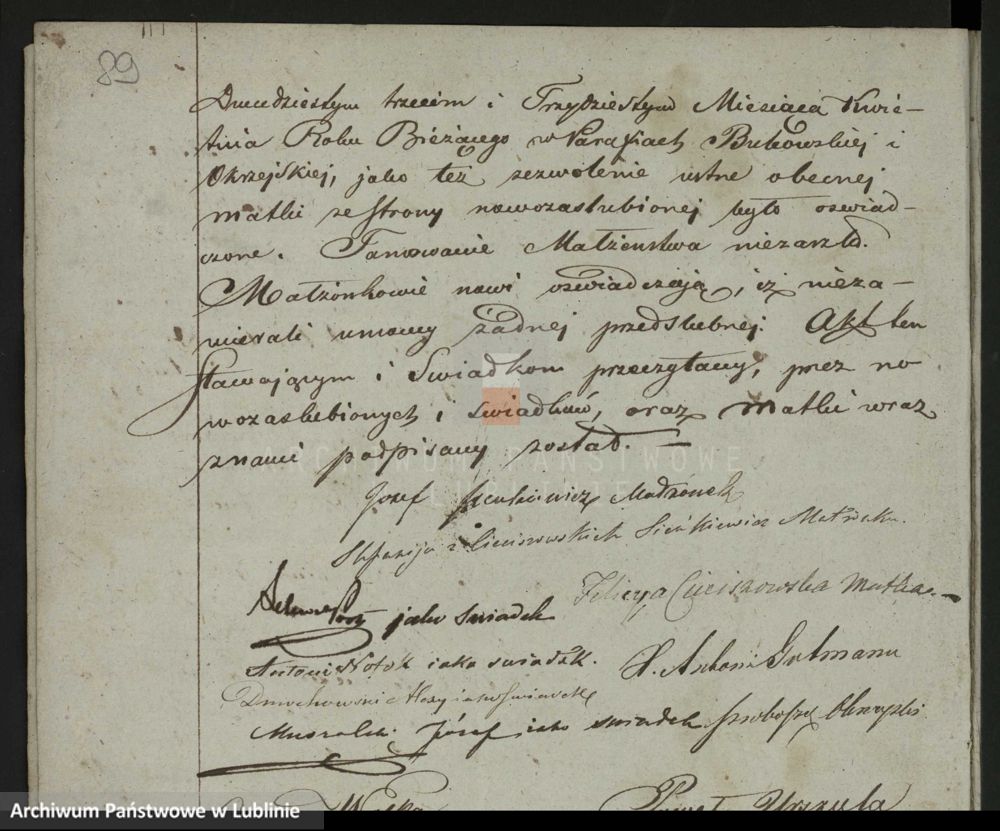 89
Dwudziestym trzecim i Trzydziestym Miesiąca Kwie-
tnia Roku Bieżącego w Parafiach Bukowskiej i
Okrzejskiej, jako też zezwolenie ustne obecnej
matki ze strony nowozaslubionej było oswiad-
czone. Tamowanie Małżenstwa niezaszło.
Małżonkowie nowi oswiadczają, iż nieza-
wierali umowy żadnej przedslubnej. Akt ten
stawającym i Swiadkom przeczytany, przez no
wozaslubionych, i swiadków, oraz Matki wraz
znami podpisany został. —
Jozef Małżonek
z Cieciszowskich Sieńkiewicz Małżonka.
Felicya Cieciszowska Matka.
jako Swiadek
Antoni jako swiadek.
X. Antoni Gutmann
Józef jako swiadek Proboszcz Okrzejski
Wólka
Paweł Urszula
ARCHIWUM PAŃSTWOWE
W LUBLINIE
Archiwum Państwowe w Lublinie